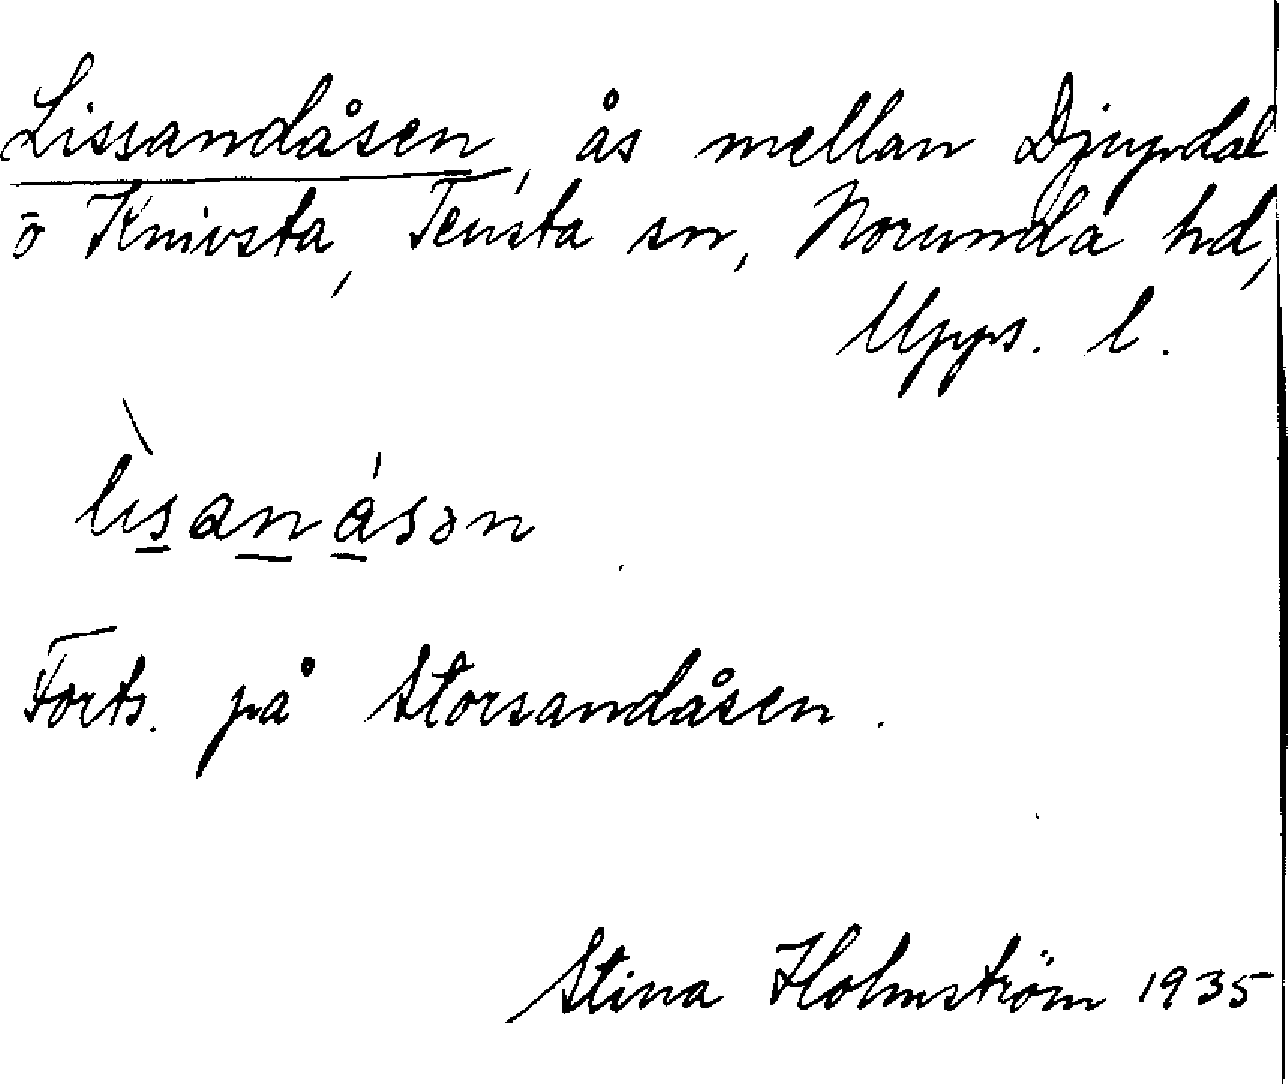 Lissandåsen, ås mellan Djupdal
o Knivsta, Tensta sn, Norunda hd,
Upps. l.
lìsanásən
Forts. på Storsandåsen.
Stina Holmström 1935